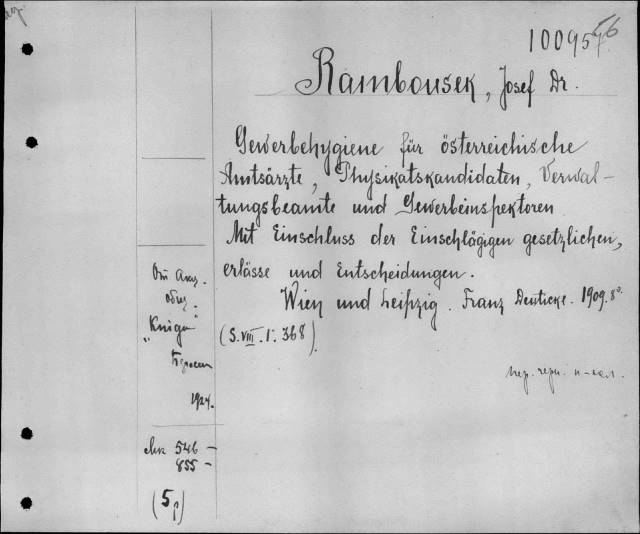 10095
Rambousek, Josef Dr.
Gewerbehygiene für österreichische
Amtsärzte, Physikatskandidaten, Verwal-
tungsbeamte und Gewerbeinspektoren
Mit Einschluss der Einschlägigen gesetzlichen,
erlässe und Entscheidungen.
Wien und Leipzig. Franz Deuticke. 1909. 8°.
(S. VIII. 1. 368).
"Книга"
1924.
546 -
855 -
(5 р)